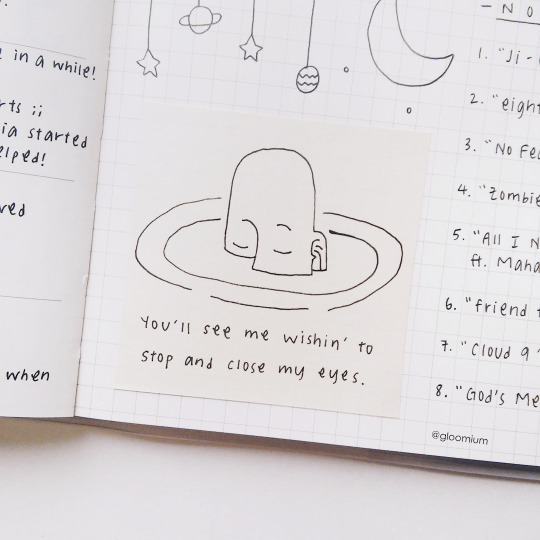 in a while!
started
when
You'll see me wishin' to
stop and close my eyes.
1. "Ji-
2. "eight
3. "No Fe
4. "Zombie
5. "All I N
ft. Maha
6. "friend
7. "Cloud 9
8. "God's Me
@gloomium